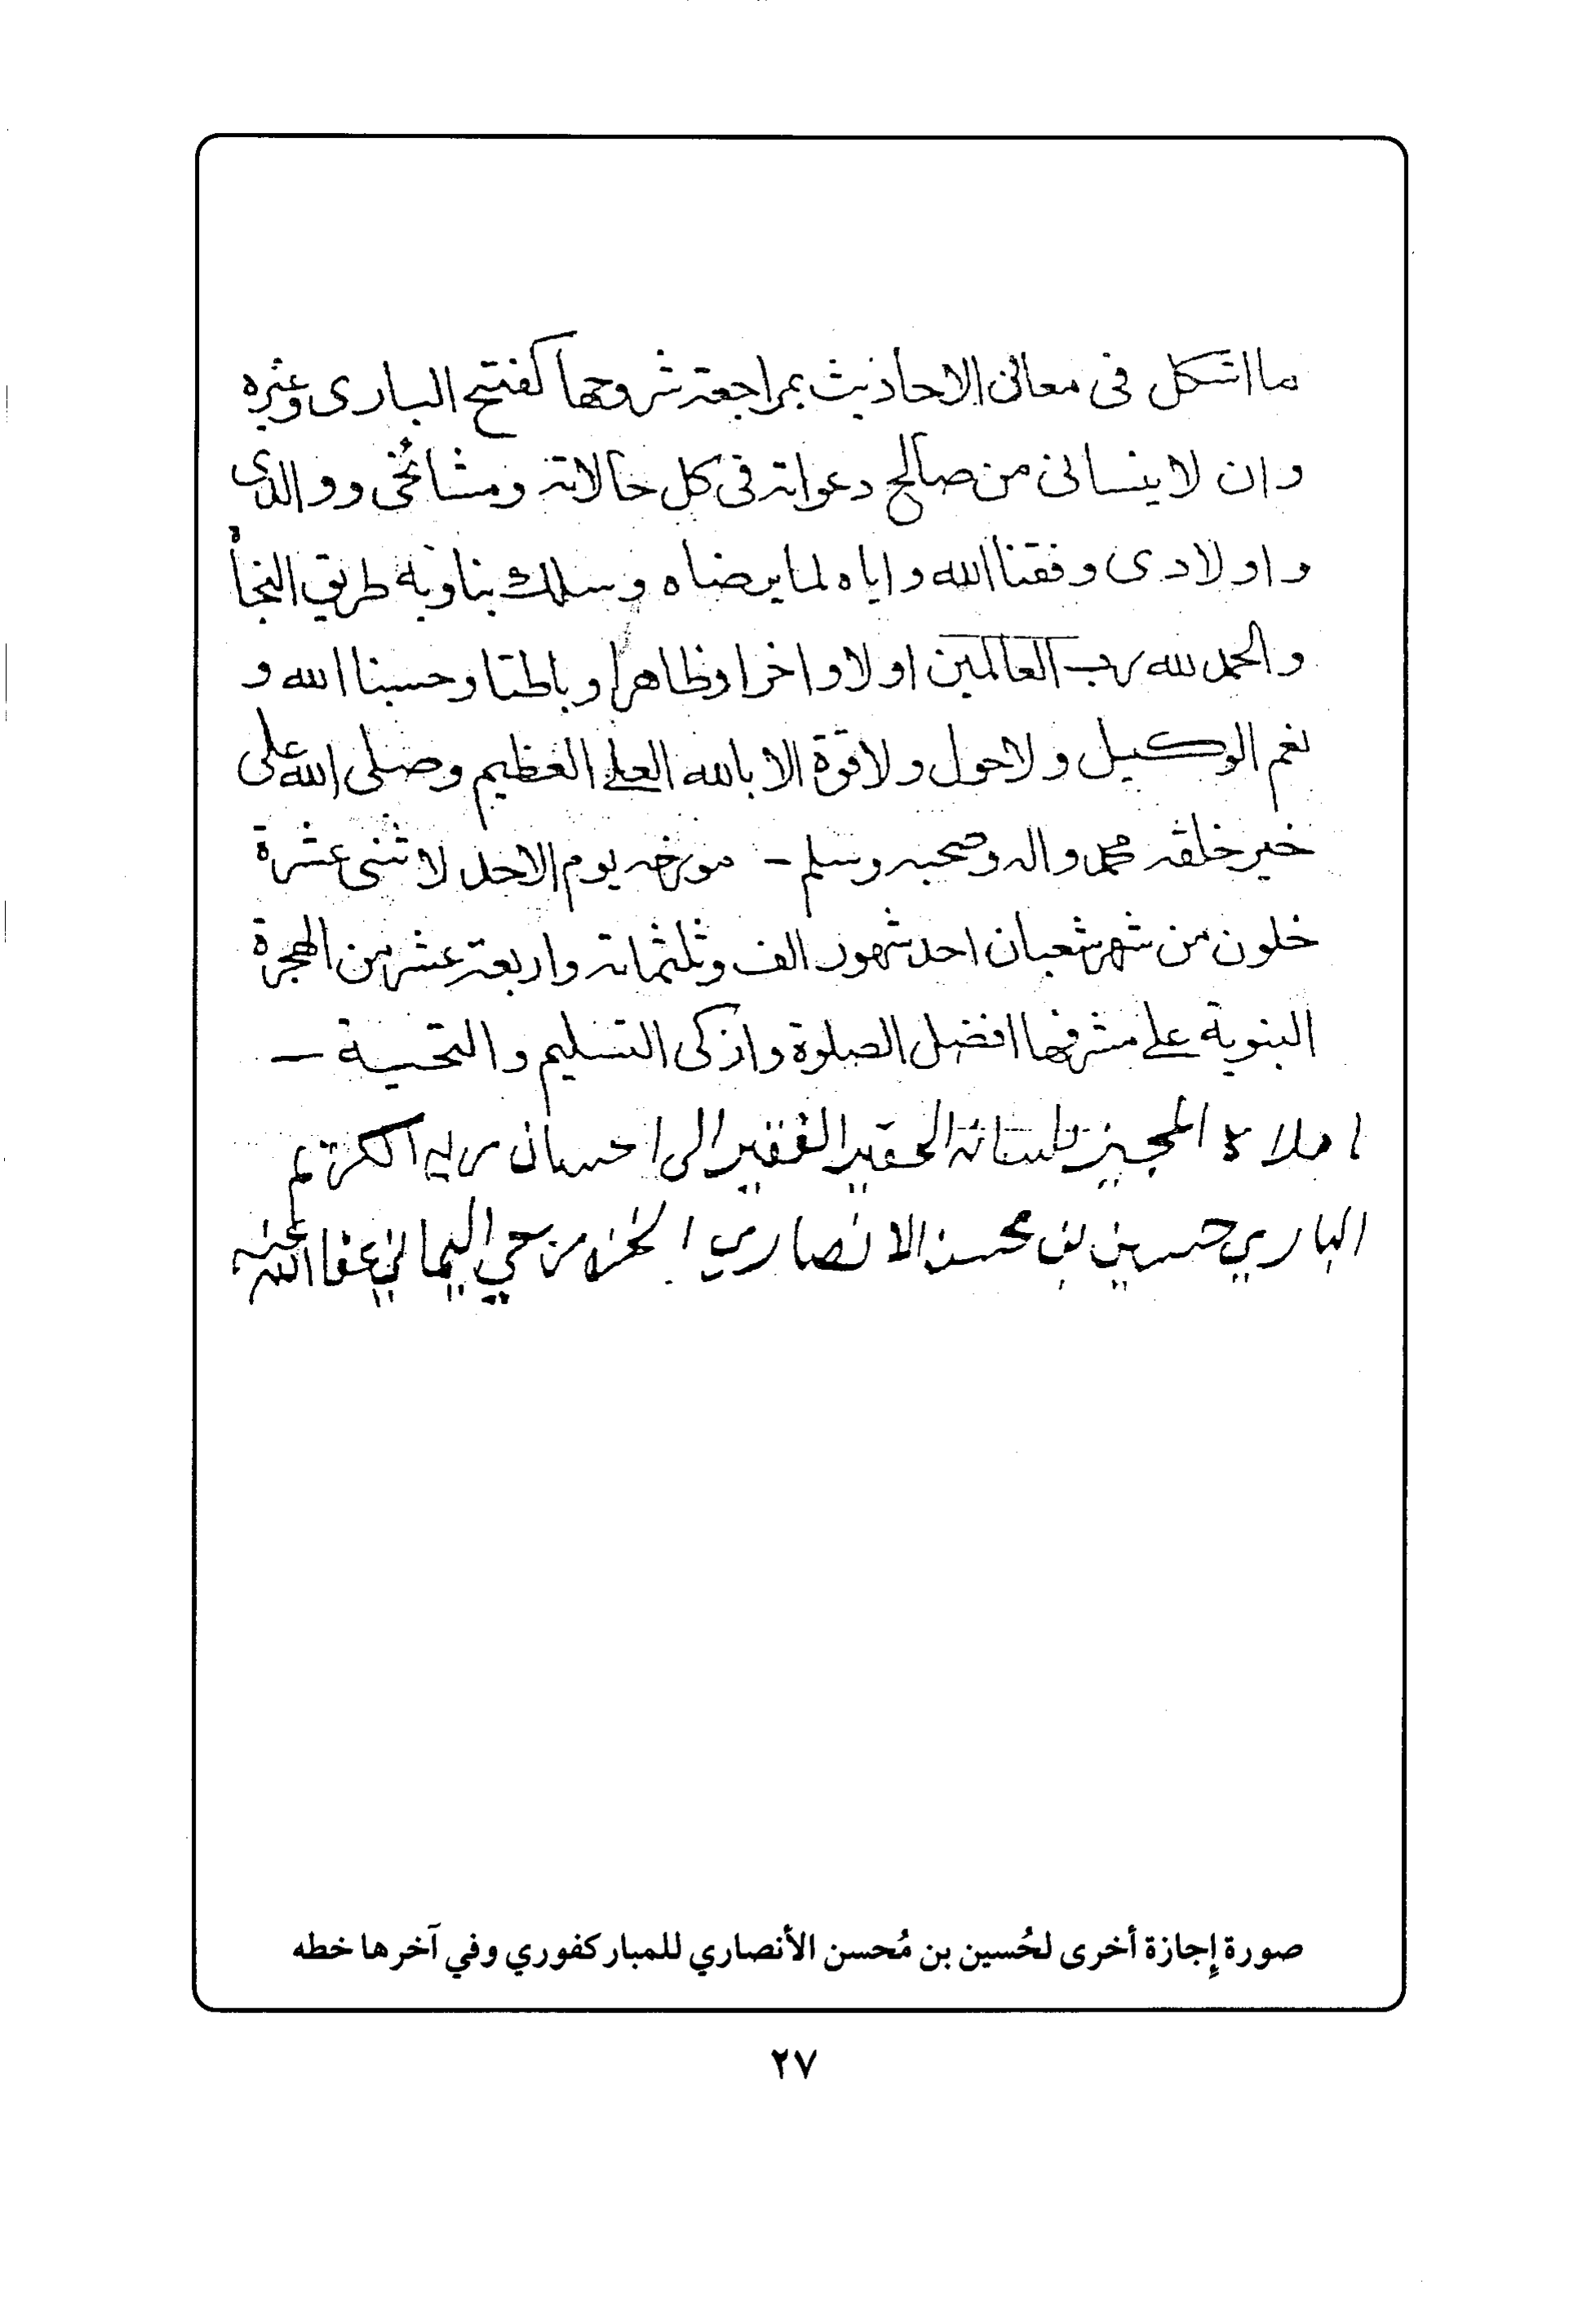 ما اشكل فى معانى الاحاديث بمراجعة شروحها كفتح البارى وغيره
وان لا ينسانى من صالح دعواته فى كل حالاته ومشائخى ووالدى
واولادى وفقنا الله واياه لما يرضاه وسلك بنا وبه طريق النجاة
والحمد لله رب العالمين اولا واخرا وظاهرا وباطنا وحسبنا الله و
نعم الوكيل ولا حول ولا قوة الا بالله العلى العظيم وصلى الله على
خير خلقه محمد واله وصحبه وسلم - مورخه يوم الاحد لاثنى عشرة
خلون من شهر شعبان احد شهور الف وثلثمائة واربعة عشر من الهجرة
النبوية على مشرفها افضل الصلوة وازكى التسليم والتحية -
املاه المجيز بلسانه الحقير الفقير الى احسان ربه الكريم
الباري حسين بن محسن الانصاري الخزرجي اليماني عفا الله عنه
صورة إجازة أخرى لحُسين بن مُحسن الأنصاري للمباركفوري وفي آخرها خطه
٢٧